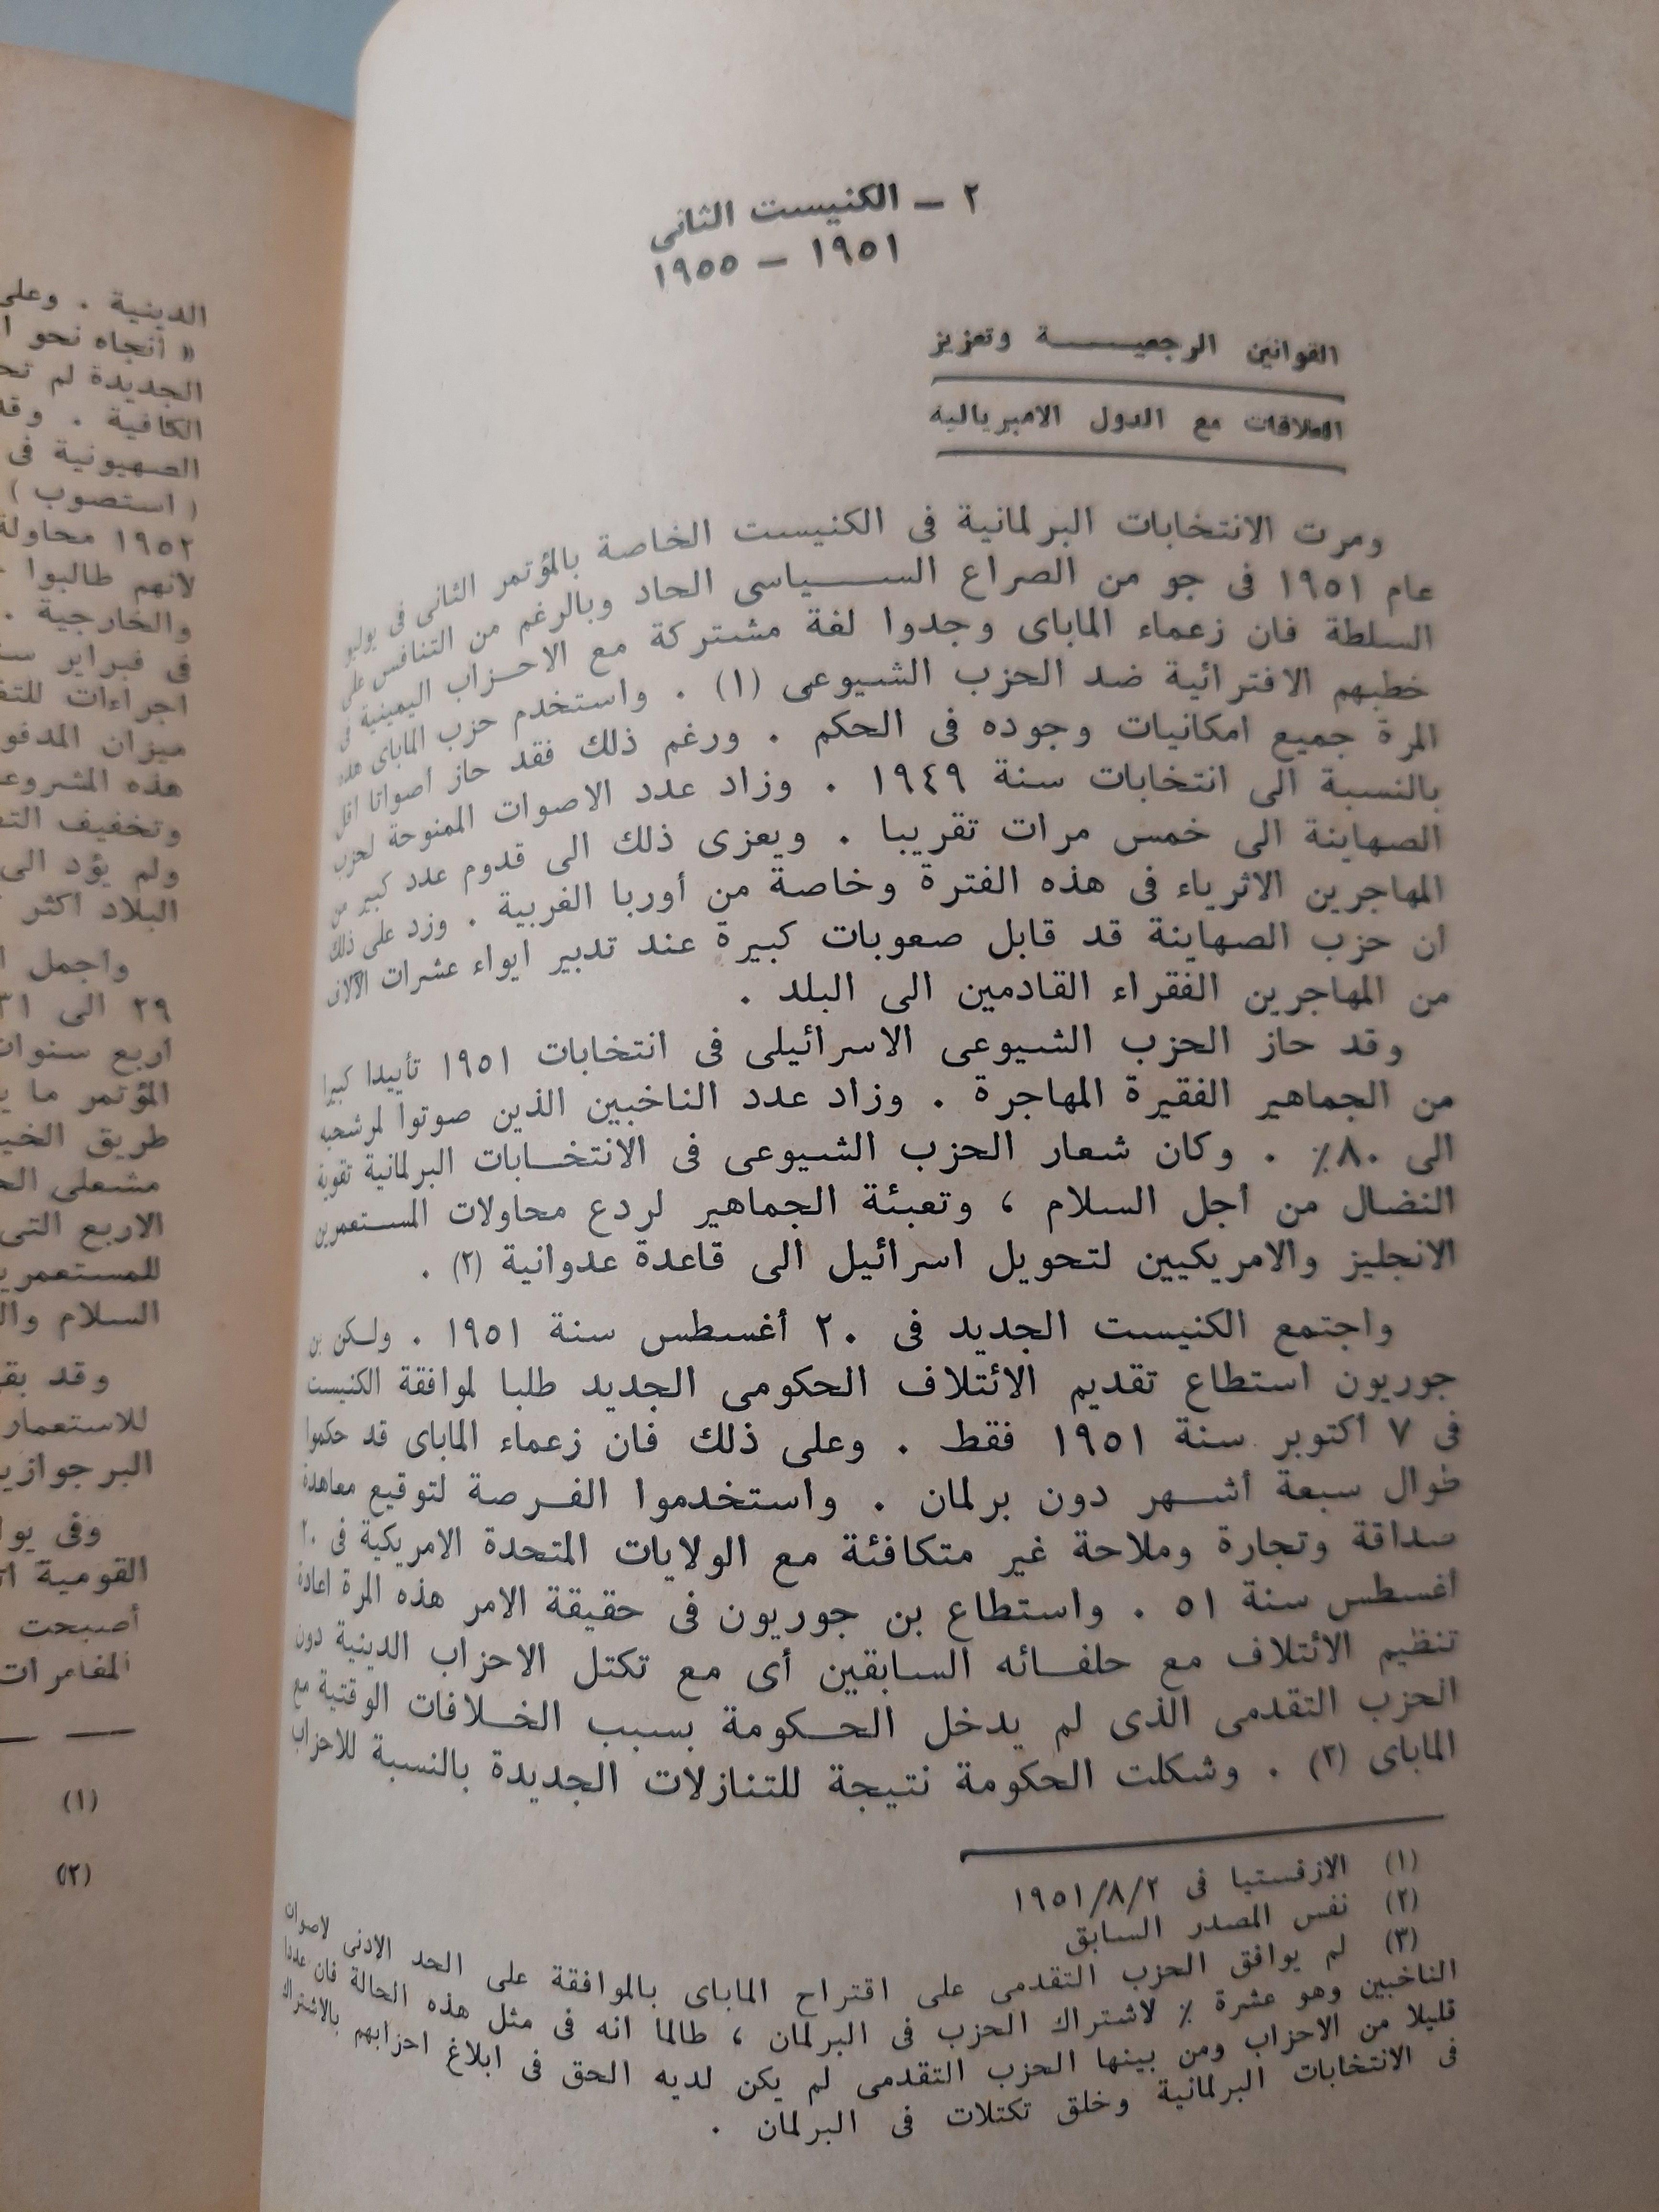 ٢ ـ الكنيست الثانى
١٩٥١ ـ ١٩٥٥
القوانين الرجعيـــــة وتعزيز
العلاقات مع الدول الامبريالية
ومرت الانتخابات البرلمانية فى الكنيست الخاصة بالمؤتمر الثانى فى يوليو
عام ١٩٥١ فى جو من الصراع الســـياسى الحاد وبالرغم من التنافس على
السلطة فان زعماء الماباى وجدوا لغة مشتركة مع الاحزاب اليمينية فى
خطبهم الافترائية ضد الحزب الشيوعى (١) . واستخدم حزب الماباى هذه
المرة جميع امكانيات وجوده فى الحكم . ورغم ذلك فقد حاز اصواتا اقل
بالنسبة الى انتخابات سنة ١٩٤٩ . وزاد عدد الاصوات الممنوحة لحزب
الصهاينة الى خمس مرات تقريبا . ويعزى ذلك الى قدوم عدد كبير من
المهاجرين الاثرياء فى هذه الفترة وخاصة من أوربا الغربية . وزد على ذلك
ان حزب الصهاينة قد قابل صعوبات كبيرة عند تدبير ايواء عشرات الآلاف
من المهاجرين الفقراء القادمين الى البلد .
وقد حاز الحزب الشيوعى الاسرائيلى فى انتخابات ١٩٥١ تأييدا كبيرا
من الجماهير الفقيرة المهاجرة . وزاد عدد الناخبين الذين صوتوا لمرشحيه
الى ٨٠٪ . وكان شعار الحزب الشيوعى فى الانتخـابات البرلمانية تقوية
النضال من أجل السلام ، وتعبئة الجماهير لردع محاولات المستعمرين
الانجليز والامريكيين لتحويل اسرائيل الى قاعدة عدوانية (٢) .
واجتمع الكنيست الجديد فى ٢٠ أغسطس سنة ١٩٥١ . ولكن بن
جوريون استطاع تقديم الائتلاف الحكومى الجديد طلبا لموافقة الكنيست
فى ٧ أكتوبر سنة ١٩٥١ فقط . وعلى ذلك فان زعماء الماباى قد حكموا
طوال سبعة أشـهر دون برلمان . واستخدموا الفـرصة لتوقيع معاهدة
صداقة وتجارة وملاحة غير متكافئة مع الولايات المتحدة الامريكية فى ٢٠
أغسطس سنة ٥١ . واستطاع بن جوريون فى حقيقة الامر هذه المرة اعادة
تنظيم الائتلاف مع حلفـائه السابقين أى مع تكتل الاحزاب الدينية دون
الحزب التقدمى الذى لم يدخل الحـكومة بسبب الخـلافات الوقتية مع
الماباى (٣) . وشكلت الحكومة نتيجة للتنازلات الجديدة بالنسبة للاحزاب
(١) الازفستيا فى ١٩٥١/٨/٢
(٢) نفس المصدر السابق
(٣) لم يوافق الحزب التقدمى على اقتراح الماباى بالموافقة على الحد الادنى لاصوات
الناخبين وهو عشرة ٪ لاشتراك الحزب فى البرلمان ، طالما انه فى مثل هذه الحالة فان عددا
قليلا من الاحزاب ومن بينها الحزب التقدمى لم يكن لديه الحق فى ابلاغ احزابهم بالاشتراك
فى الانتخابات البرلمانية وخلق تكتلات فى البرلمان .
الدينية . وعلى
« اتجاه نحو
الجديدة لم
الكافية .
الصهيونية فى
( استصوب )
١٩٥٢ محاولة
لأنهم طالبوا
والخارجية .
فى فبراير
اجراءات
ميزان
هذه
وتخفيف
ولم يؤد الى
البلاد اكثر
واجمل
٢٩ الى ٣١
اربع سنوات
المؤتمر ما
طريق
مشعلى
الاربع التى
السلام
وقد
للاستعمار
وفى
القومية
أصبحت
المغامرات
(١)
(٢)